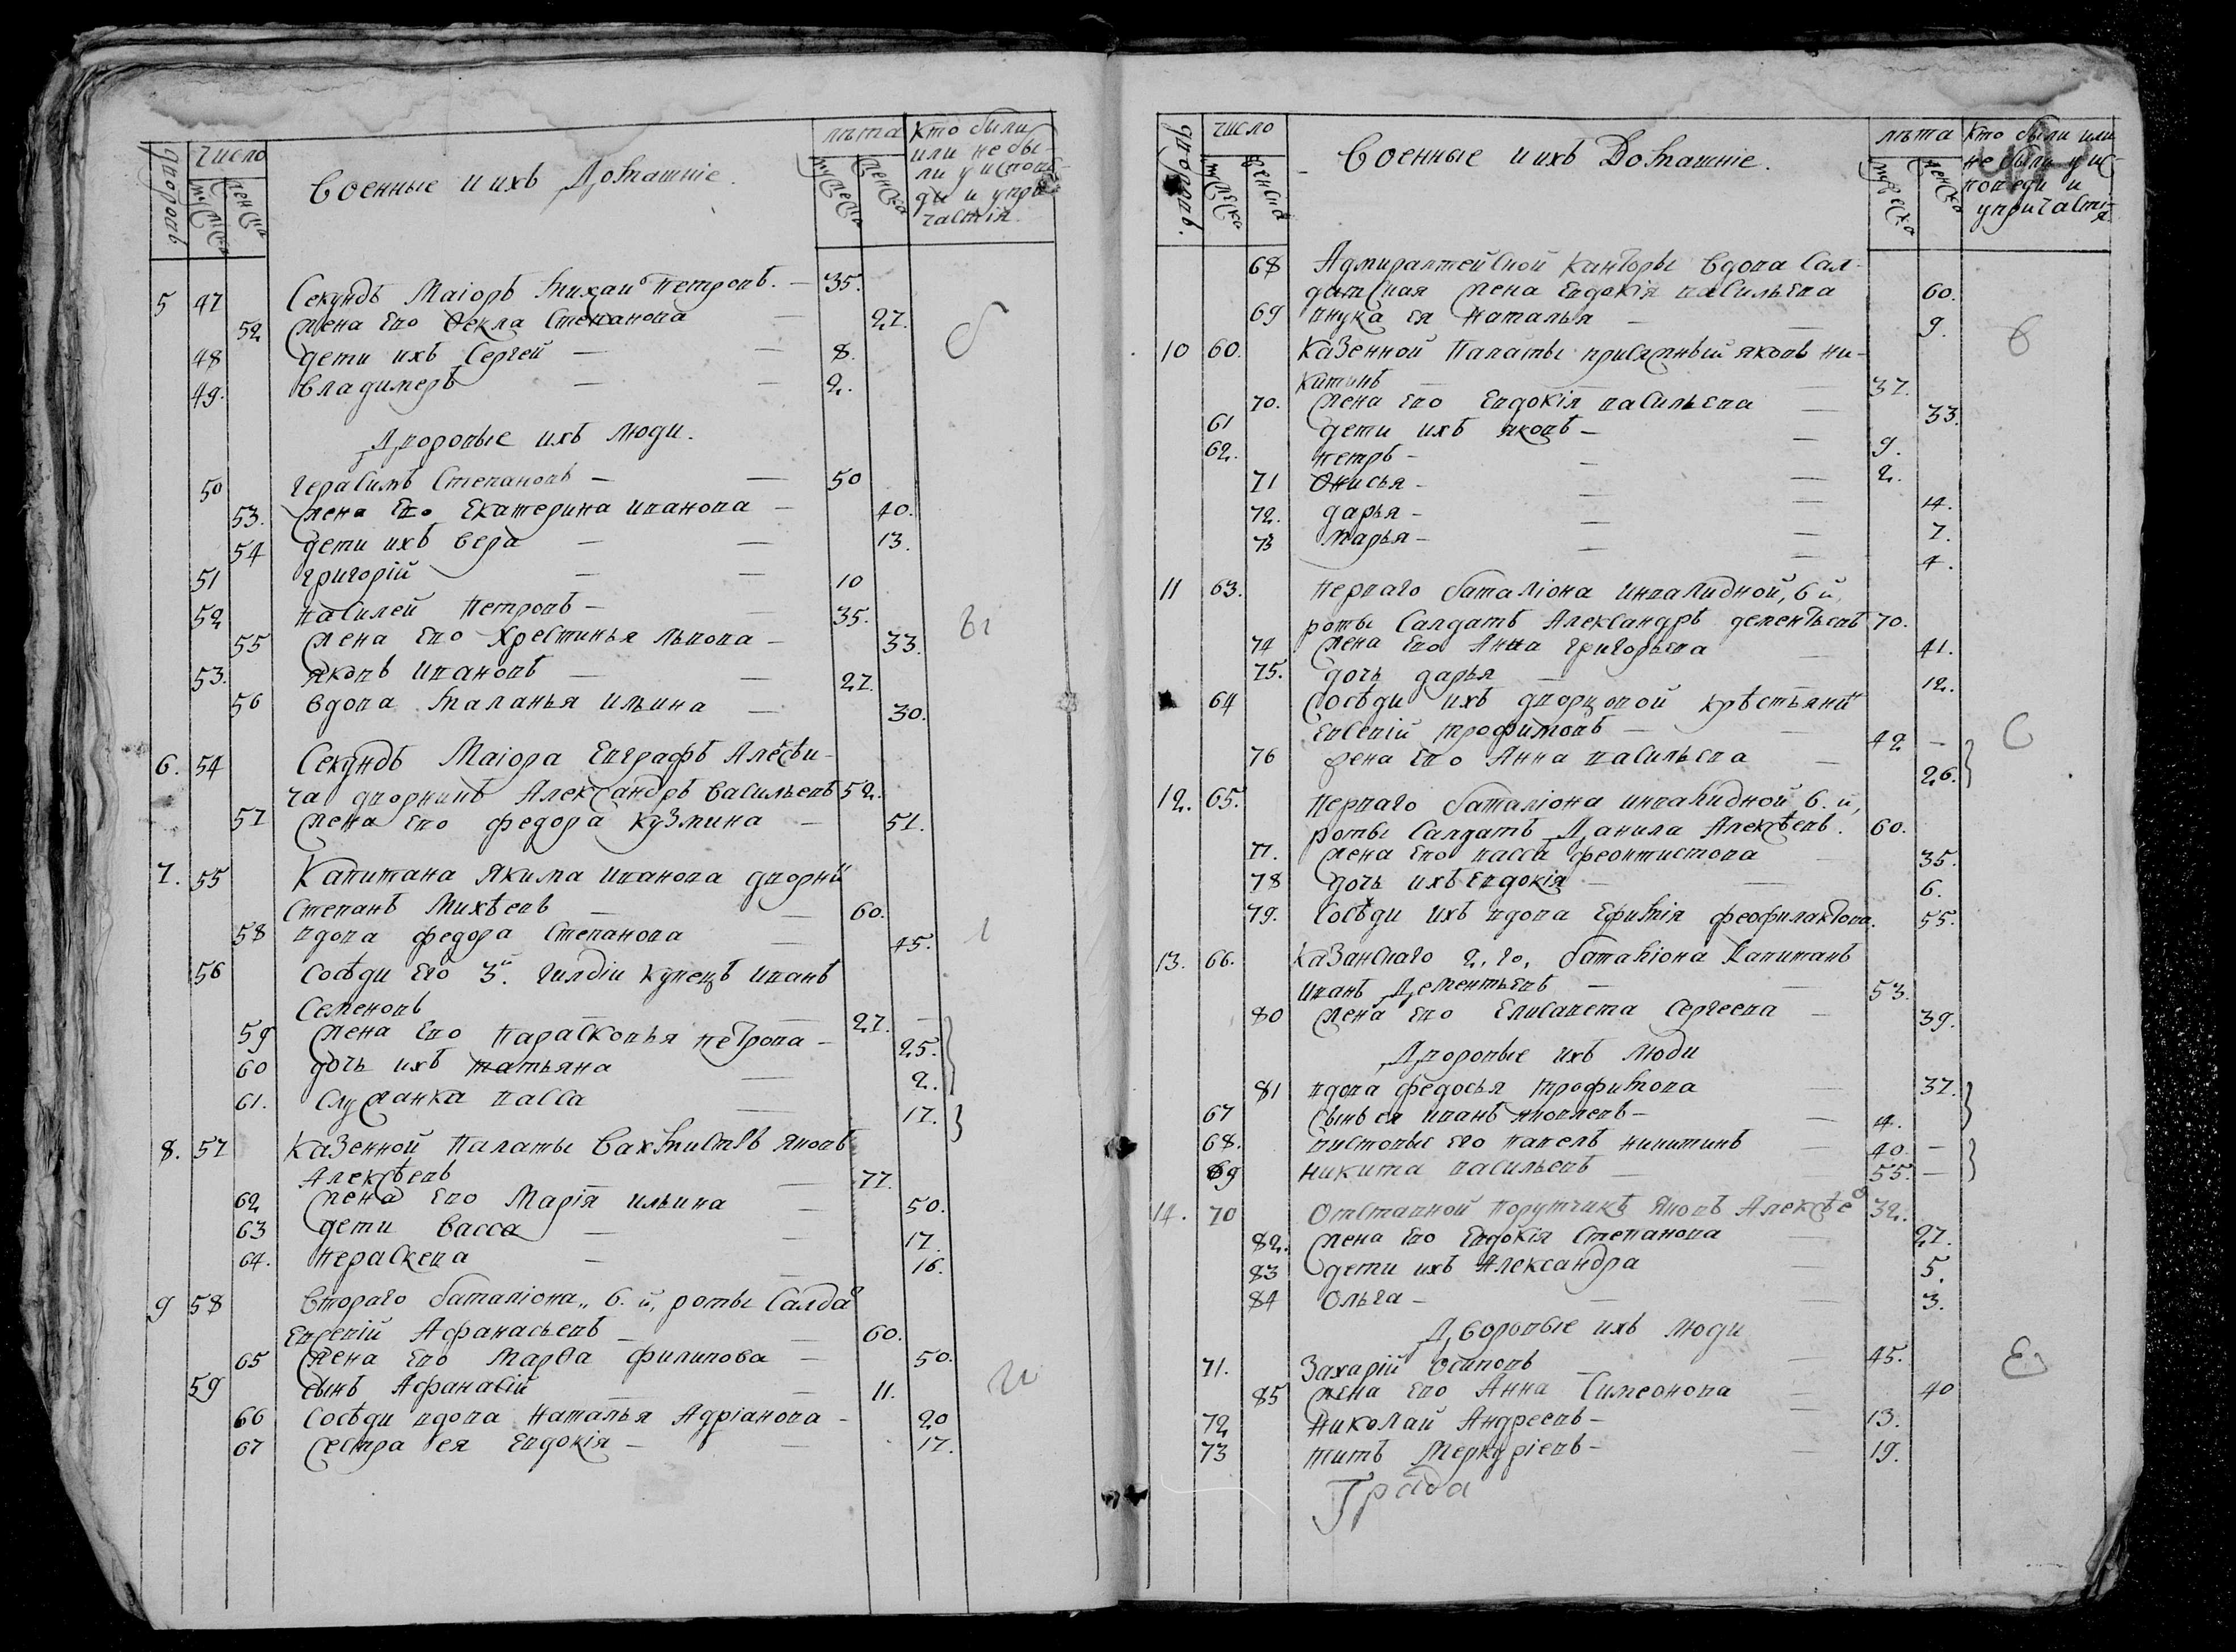 дворовъ
число
мужеска
женска
Военные и ихъ Домашніе.
лѣта
мужеска
женска
кто были
или не бы-
ли у испове-
ди и у при-
частія
5 47 Секундъ Маіоръ Михаило Петровъ. — 35.
52 жена Ево Ѳекла Степанова — 27.
48 дети ихъ Сергей — — 8.
49. Владимеръ — — 2.
Дворовые ихъ люди.
50 Герасимъ Степановъ — — 50
53. жена Ево Екатерина Иванова — 40.
54 дети ихъ Вера — — 13.
51 Григорій — — 10
52 Василей Петровъ — — 35.
55 жена Ево Хрестинья Львова — 33.
53. Яковъ Ивановъ — — 27.
56 Вдова Маланья Ильина — 30.
6. 54 Секундъ Маіора Евграфъ Алексѣи-
ча дворникъ Александръ Васильевъ 52.
57 жена Ево Федора Кузмина — 51.
7. 55 Капитана Якима Иванова дворни
Степанъ Михѣевъ — — 60.
58 вдова Федора Степанова — 45.
56 Сосѣди Его 3й. гилдіи купецъ Иванъ
Семеновъ — 27. —
59 жена Ево Парасковья Петрова — 25.
60 дочь ихъ Татьяна — 2.
61. Служанка Васса — 17.
8. 57 Казенной Палаты Вахмистръ Яковъ
Алексѣевъ — 77.
62 жена Ево Марія Ильина — 50.
63 дети Васса — — 17.
64. Параскева — — 16.
9 58 Втораго баталіона,, 6.й, роты Салда
Евсевій Афанасьевъ — — 60.
65 жена Ево Марѳа Филипова — 50.
59 сынъ Афанасій — — 11.
66 Сосѣди вдова Наталья Адріанова — 20
67 Сестра ея Евдокія — — 17.
дворовъ.
число
мужеска
женска
Военные и ихъ Домашніе.
лѣта
мужеска
женска
кто были или
не были у ис-
поведи и
у причастія
68 Адмиралтейской Канторы Вдова Сал-
датская жена Евдокія Васильева 60.
69 внука ея Наталья — — 9.
10 60. Казенной Палаты присяжный Яковъ Ни-
китинъ — 37.
70. жена Ево Евдокія Васильева — 33.
61 дети ихъ Яковъ — — 9.
62. Петръ — — 2.
71 Онисья — — 14.
72. Дарья — — 7.
73 Марья — — 4.
11 63. Перваго баталіона инвалидной, 6 й,
роты Салдатъ Александръ Дементьевъ 70.
74 жена Ево Анна Григорьева — 41.
75. дочь Дарья — 12.
64 Сосѣди ихъ дворцовой крѣстьяни
Евсевій Трофимовъ — — 42 —
76 жена Ево Анна Васильева — 26.
12. 65. Перваго баталіона инвалидной 6.й,
роты Салдатъ Данила Алексѣевъ. 60.
77. жена Ево Васса Феоктистова — 35.
78 дочь ихъ Евдокія — — 6.
79. Сосѣди ихъ вдова Ефимія Феофилактова. 55.
13. 66. Казанскаго 2,го, баталіона Капитанъ
Иванъ Дементьевъ — — 53.
80 жена Ево Елисавета Сергеева — 39.
Дворовые ихъ люди
81 вдова Федосья Трофимова — 37.
67 сынъ ея Иванъ Яковлевъ — — 4.
68. вистовые Его Павелъ Никитинъ 40. —
69 Никита Васильевъ — — 55. —
14. 70 Отставной Порутчикъ Яковъ Алексѣе 32.
82. жена Ево Евдокія Степанова 27.
83 дети ихъ Александра — 5.
84 Ольга — — — 3.
Дворовые ихъ люди
71. Захарій Осиповъ — — 45.
85 жена Ево Анна Симеонова — 40
72 Николай Андреевъ — — 13.
73 Титъ Меркуріевъ — — 19.
Града